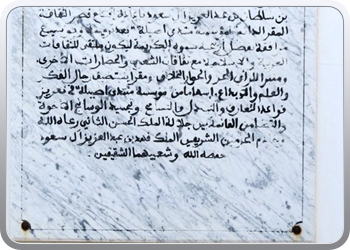 بن سلطان بن عبد العزيز آل سعود
المقر الدائم لمؤسسة منتدى أصيلة
موافقة سموه الكريمة ليكون ملتقى للثقافات
العربية والإسلامية مع ثقافات الشعوب والحضارات الأخرى
ومنبرا للرأي الحر والحوار الخلاق ومقرا يستضيف رجال الفكر
والعلم والإبداع إسهاما من مؤسسة منتدى أصيلة في تعزيز
قواعد التعارف والتبادل والتسامح وتجسيد الوشائج الأخوية
والتضامن القائمة بين جلالة الملك الحسن الثاني رعاه الله
وخادم الحرمين الشريفين الملك فهد بن عبد العزيز آل سعود
حفظه الله وشعبيهما الشقيقين.